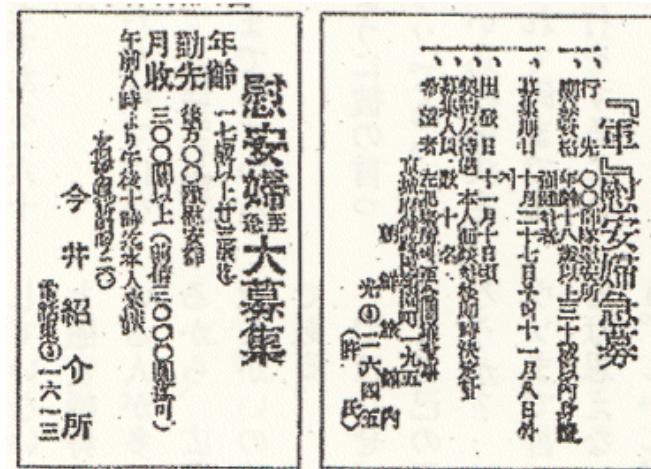 『軍』慰安婦急募
一、行先 〇〇部隊慰安所
一、應募資格 年齢十八歲以上三十歲以內身體强健者
一、募集期日 十月二十七日부터十一月八日까지
一、出發日 十一月十日頃
一、契約及待遇 本人面談後即時決定함
一、募集人員 數十名
一、希望者 左記場所에至急問議事
京城府鍾路區 町一九五
朝鮮旅館內
光③二六四五
(許氏)
慰安婦至急大募集
年齢 一七歲以上廿三歲迄
勤先 後方〇〇隊慰安部
月收 三〇〇圓以上(前借三〇〇〇圓迄可)
午前八時より午後十時迄本人來談
京城府鍾路區 町二〇
今井紹介所
電話東③一六一三